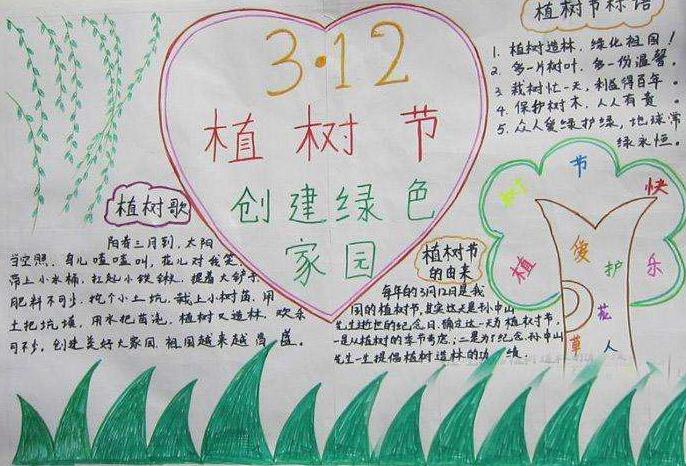 3·12
植树节
创建绿色
家园
植树节标语
1. 植树造林，绿化祖国！
2. 多一片树叶，多一份温馨。
3. 栽树忙一天，利益得百年。
4. 保护树木，人人有责。
5. 众人爱绿护绿，地球常
绿永恒。
植树歌
阳春三月到，太阳
当空照，鸟儿喳喳叫，花儿对我笑，
带上小水桶，扛起小铁锹，提着大铲子，
肥料不可少，挖个小土坑，栽上小树苗，用
土把坑填，用水把苗浇，植树又造林，欢乐
可不少，创建美好大家园，祖国越来越
植树节
的由来
每年的3月12日是我
国的植树节，其实这天是孙中山
先生逝世的纪念日，确定这一天为植树节，
一是从植树的季节考虑；二是为了纪念孙中山
先生一生提倡植树造林的功绩。
植树节快乐
爱护花草人